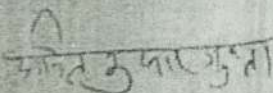 अनित कुमार गुप्ता